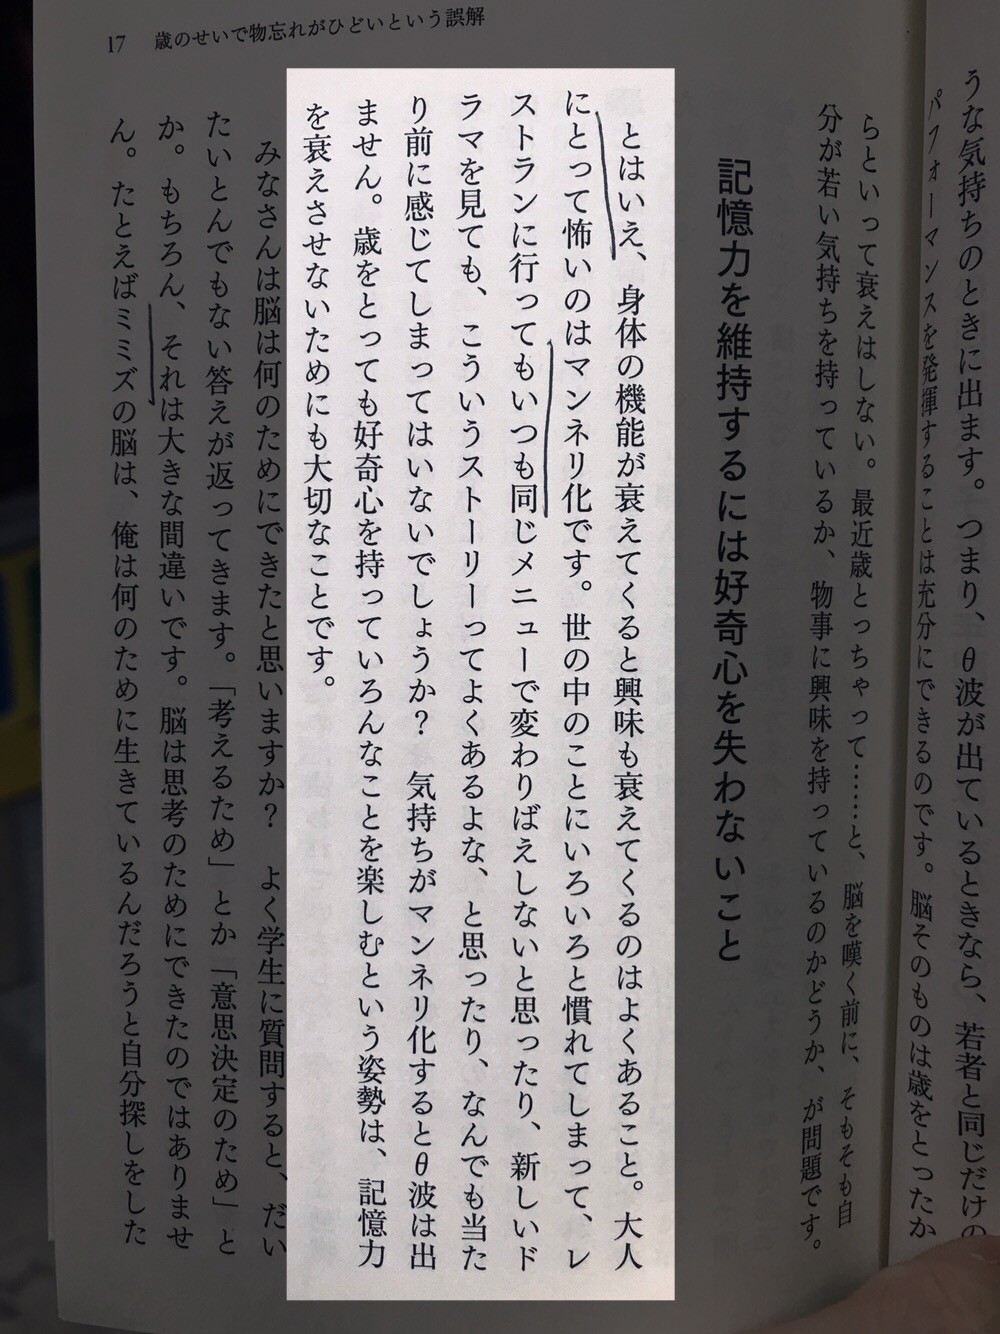 17 歳のせいで物忘れがひどいという誤解
うな気持ちのときに出ます。つまり、θ波が出ているときなら、若者と同じだけの
パフォーマンスを発揮することは充分にできるのです。脳そのものは歳をとったか
らといって衰えはしない。最近歳とっちゃって……と、脳を嘆く前に、そもそも自
分が若い気持ちを持っているか、物事に興味を持っているのかどうか、が問題です。
記憶力を維持するには好奇心を失わないこと
とはいえ、身体の機能が衰えてくると興味も衰えてくるのはよくあること。大人
にとって怖いのはマンネリ化です。世の中のことにいろいろと慣れてしまって、レ
ストランに行ってもいつも同じメニューで変わりばえしないと思ったり、新しいド
ラマを見ても、こういうストーリーってよくあるよな、と思ったり、なんでも当た
り前に感じてしまってはいないでしょうか? 気持ちがマンネリ化するとθ波は出
ません。歳をとっても好奇心を持っていろんなことを楽しむという姿勢は、記憶力
を衰えさせないためにも大切なことです。
みなさんは脳は何のためにできたと思いますか? よく学生に質問すると、だい
たいとんでもない答えが返ってきます。「考えるため」とか「意思決定のため」と
か。もちろん、それは大きな間違いです。脳は思考のためにできたのではありませ
ん。たとえばミミズの脳は、俺は何のために生きているんだろうと自分探しをした